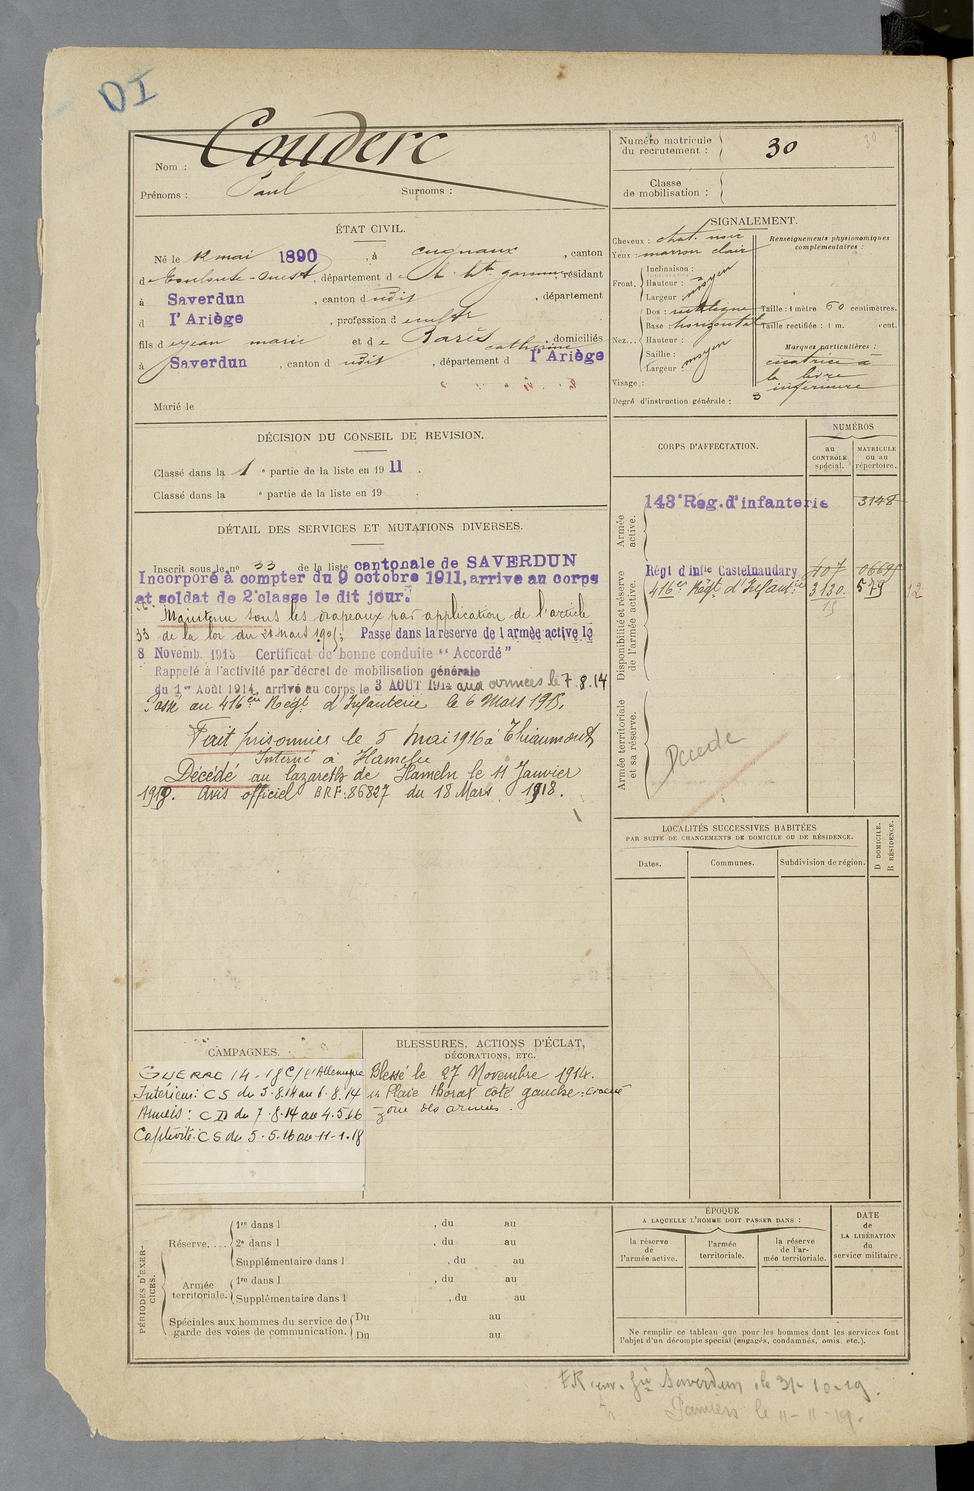 DI
Nom : Couderc
Prénoms : Paul Surnoms :
Numéro matricule du recrutement : 30
30
Classe de mobilisation :
ÉTAT CIVIL.
Né le 12 mai 1890, à Cugnaux, canton
de Toulouse-Ouest, département de la hte garonne, résidant
à Saverdun, canton dudit, département
d l'Ariège, profession d
fils de jean marie et de Barès catherine, domiciliés
à Saverdun, canton dudit, département d l'Ariège
Marié le
SIGNALEMENT.
Cheveux : chat. noir
Yeux : marron clair
Front. Inclinaison :
Hauteur : moyen
Largeur :
Nez... Dos : rectiligne
Base : horizontal
Hauteur :
Saillie : moyen
Largeur :
Visage :
Degré d'instruction générale : 3
Renseignements physionomiques complémentaires :
Taille : 1 mètre 60 centimètres.
Taille rectifiée : 1 m. cent.
Marques particulières :
cicatrice à
la lèvre
inférieure
DÉCISION DU CONSEIL DE REVISION.
Classé dans la 1 e partie de la liste en 1911.
Classé dans la e partie de la liste en 19
CORPS D'AFFECTATION.
NUMÉROS
au CONTRÔLE spécial.
MATRICULE ou au répertoire.
Armée active.
143e Reg. d'infanterie 3148
Disponibilité et réserve de l'armée active.
Régt d'infie Castelnaudary 107 06695
416e Régt d'Infantie 3130 579 12
15
Armée territoriale et sa réserve.
Décédé
DÉTAIL DES SERVICES ET MUTATIONS DIVERSES.
Inscrit sous le no 33 de la liste cantonale de SAVERDUN
Incorporé à compter du 9 octobre 1911, arrivé au corps
et soldat de 2e classe le dit jour.
Maintenu sous les drapeaux par application de l'article
33 de la loi du 21 mars 1905; Passé dans la réserve de l'armée active le
8 Novemb. 1913 Certificat de bonne conduite "Accordé"
Rappelé à l'activité par décret de mobilisation générale
du 1er Août 1914, arrivé au corps le 3 AOUT 1914 aux armées le 7.8.14
Passé au 416e Régt d'Infanterie le 6 Mars 1915.
Fait prisonnier le 5 mai 1916 à Thiaumont
Interné à Hameln
Décédé au lazareth de Hameln le 11 Janvier
1918. Avis officiel BRF: 86827 du 18 Mars 1918.
LOCALITÉS SUCCESSIVES HABITÉES
PAR SUITE DE CHANGEMENTS DE DOMICILE OU DE RÉSIDENCE.
Dates. Communes. Subdivision de région.
D DOMICILE.
R RÉSIDENCE.
CAMPAGNES.
GUERRE 14-18 C/ l'Allemagne
Intérieur: CS du 3.8.14 au 6.8.14
Armées: CD du 7.8.14 au 4.5.16
Captivité: CS du 5.5.16 au 11.1.18
BLESSURES, ACTIONS D'ÉCLAT,
DÉCORATIONS, ETC.
Blessé le 27 Novembre 1914.
Plaie thorax côté gauche.
zone des armées.
PÉRIODES D'EXERCICES.
Réserve.... 1re dans l , du au
2e dans l , du au
Supplémentaire dans l , du au
Armée territoriale. 1re dans l , du au
Supplémentaire dans l , du au
Spéciales aux hommes du service de garde des voies de communication. Du au
Du au
ÉPOQUE
A LAQUELLE L'HOMME DOIT PASSER DANS :
la réserve de l'armée active.
l'armée territoriale.
la réserve de l'armée territoriale.
DATE de LA LIBÉRATION du service militaire.
Ne remplir ce tableau que pour les hommes dont les services font
l'objet d'un décompte spécial (engagés, condamnés, omis, etc.).
Saverdun, le 31-10-19.
Pamiers le 11-11-19.